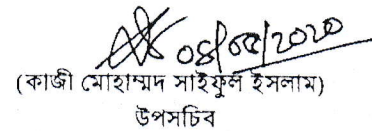 08/05/2020
(কাজী মোহাম্মদ সাইফুল ইসলাম)
উপসচিব